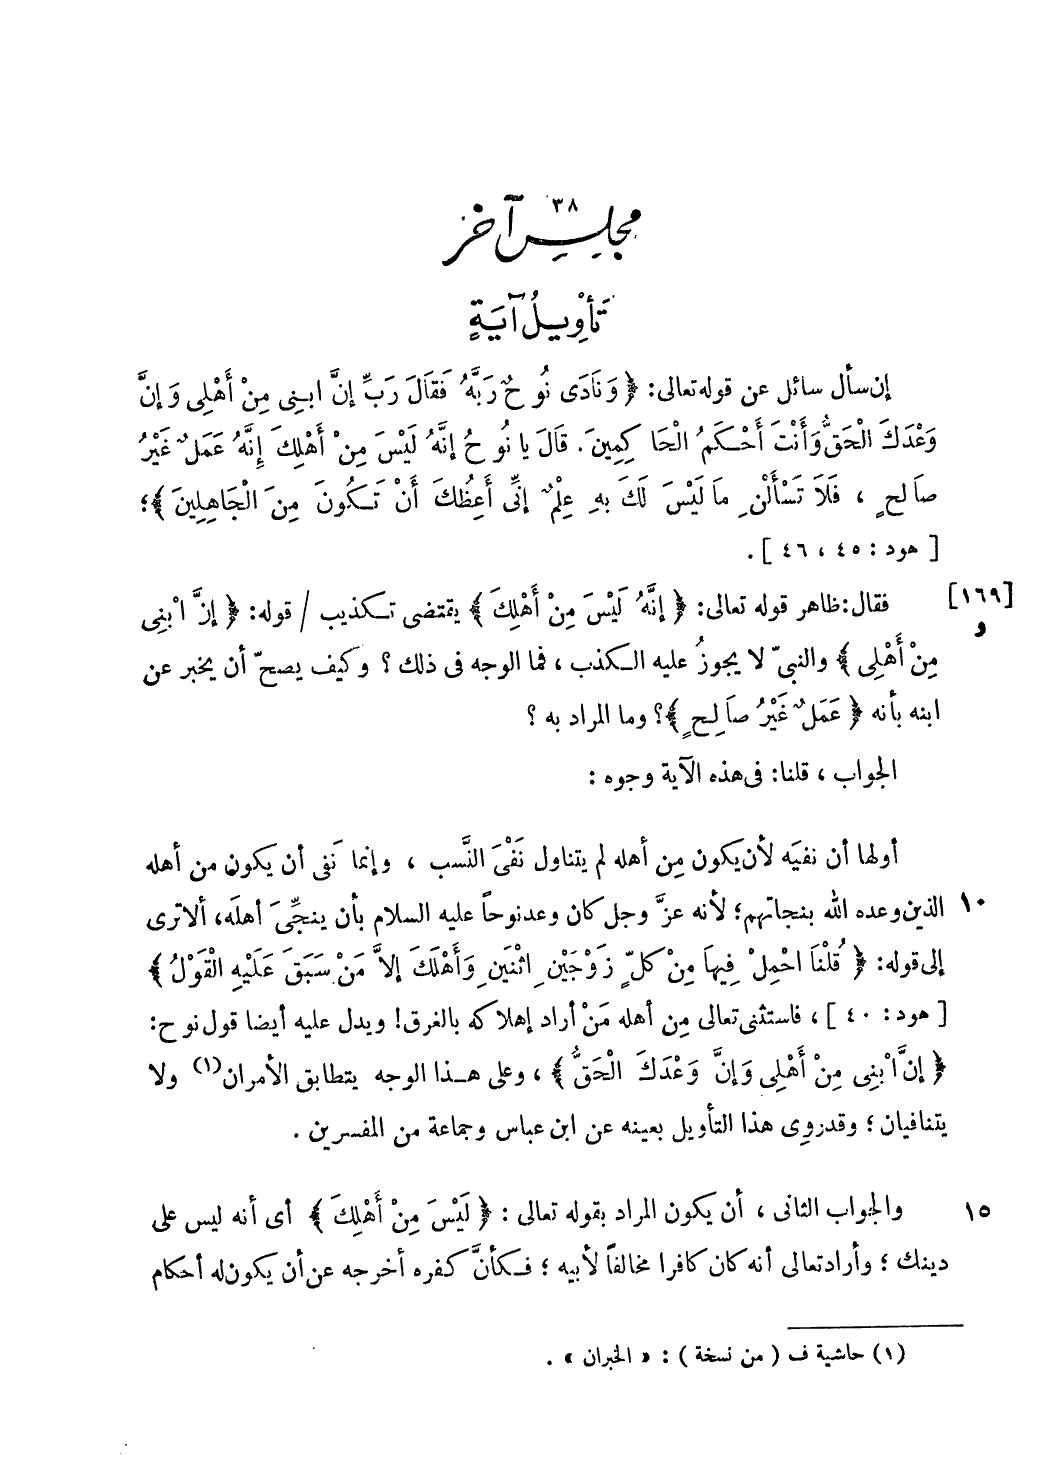 ٣٨
مجلس آخر
تَأْوِيلُ آيَةٍ
إن سأل سائل عن قوله تعالى: ﴿ وَنَادَى نُوحٌ رَبَّهُ فَقَالَ رَبِّ إنَّ ابنِى مِنْ أَهْلِى وَإِنَّ
وَعْدَكَ الْحَقُّ وَأَنْتَ أَحْكَمُ الْحَاكِمِينَ. قَالَ يا نُوحُ إنَّهُ لَيْسَ مِنْ أَهْلِكَ إِنَّهُ عَمَلٌ غَيْرُ
صَالحٍ ، فَلاَ تَسْأَلْنِ مَا لَيْسَ لَكَ بِهِ عِلْمٌ إنِّى أَعِظُكَ أَنْ تَكُونَ مِنَ الْجَاهِلِينَ ﴾؛
[ هود : ٤٥ ، ٤٦ ] .
فقال: ظاهر قوله تعالى: ﴿ إنَّهُ لَيْسَ مِنْ أَهْلِكَ ﴾ يقتضى تكذيب / قوله: ﴿ إنَّ ابْنِى [١٦٩]
مِنْ أَهْلِى ﴾ والنبىّ لا يجوزُ عليه الكذب ، فما الوجه فى ذلك ؟ وكيف يصحّ أن يخبر عن و
ابنه بأنه ﴿ عَمَلٌ غَيْرُ صَالِحٍ ﴾؟ وما المراد به ؟
الجواب ، قلنا: فى هذه الآية وجوه :
أولها أن نفيَه لأن يكون مِن أهله لم يتناول نَفْىَ النَّسب ، وإنما نَفى أن يكون من أهله
الذين وعده الله بنجاتهم؛ لأنه عزَّ وجل كان وعد نوحاً عليه السلام بأن ينجِّىَ أهلَه، ألا ترى ١٠
إلى قوله: ﴿ قُلْنَا احْمِلْ فِيهَا مِنْ كلٍّ زَوْجَيْنِ اثْنَينِ وَأَهْلَكَ إلاَّ مَنْ سَبَقَ عَلَيْهِ الْقَوْلُ ﴾
[ هود: ٤٠ ] ، فاستثنى تعالى مِن أهله مَنْ أراد إهلاكه بالغرق! ويدل عليه أيضا قول نوح:
﴿ إنَّ ابْنِى مِنْ أَهْلِى وَإِنَّ وَعْدَكَ الْحَقُّ ﴾ ، وعلى هذا الوجه يتطابق الأمران(١) ولا
يتنافيان ؛ وقد روِى هذا التأويل بعينه عن ابن عباس وجماعة من المفسرين .
والجواب الثانى ، أن يكون المراد بقوله تعالى : ﴿ لَيْسَ مِنْ أَهْلِكَ ﴾ أى أنه ليس على ١٥
دينك ؛ وأراد تعالى أنه كان كافرا مخالفاً لأبيه ؛ فكأنَّ كفره أخرجه عن أن يكون له أحكام
(١) حاشية ف ( من نسخة ) : « الخبران » .